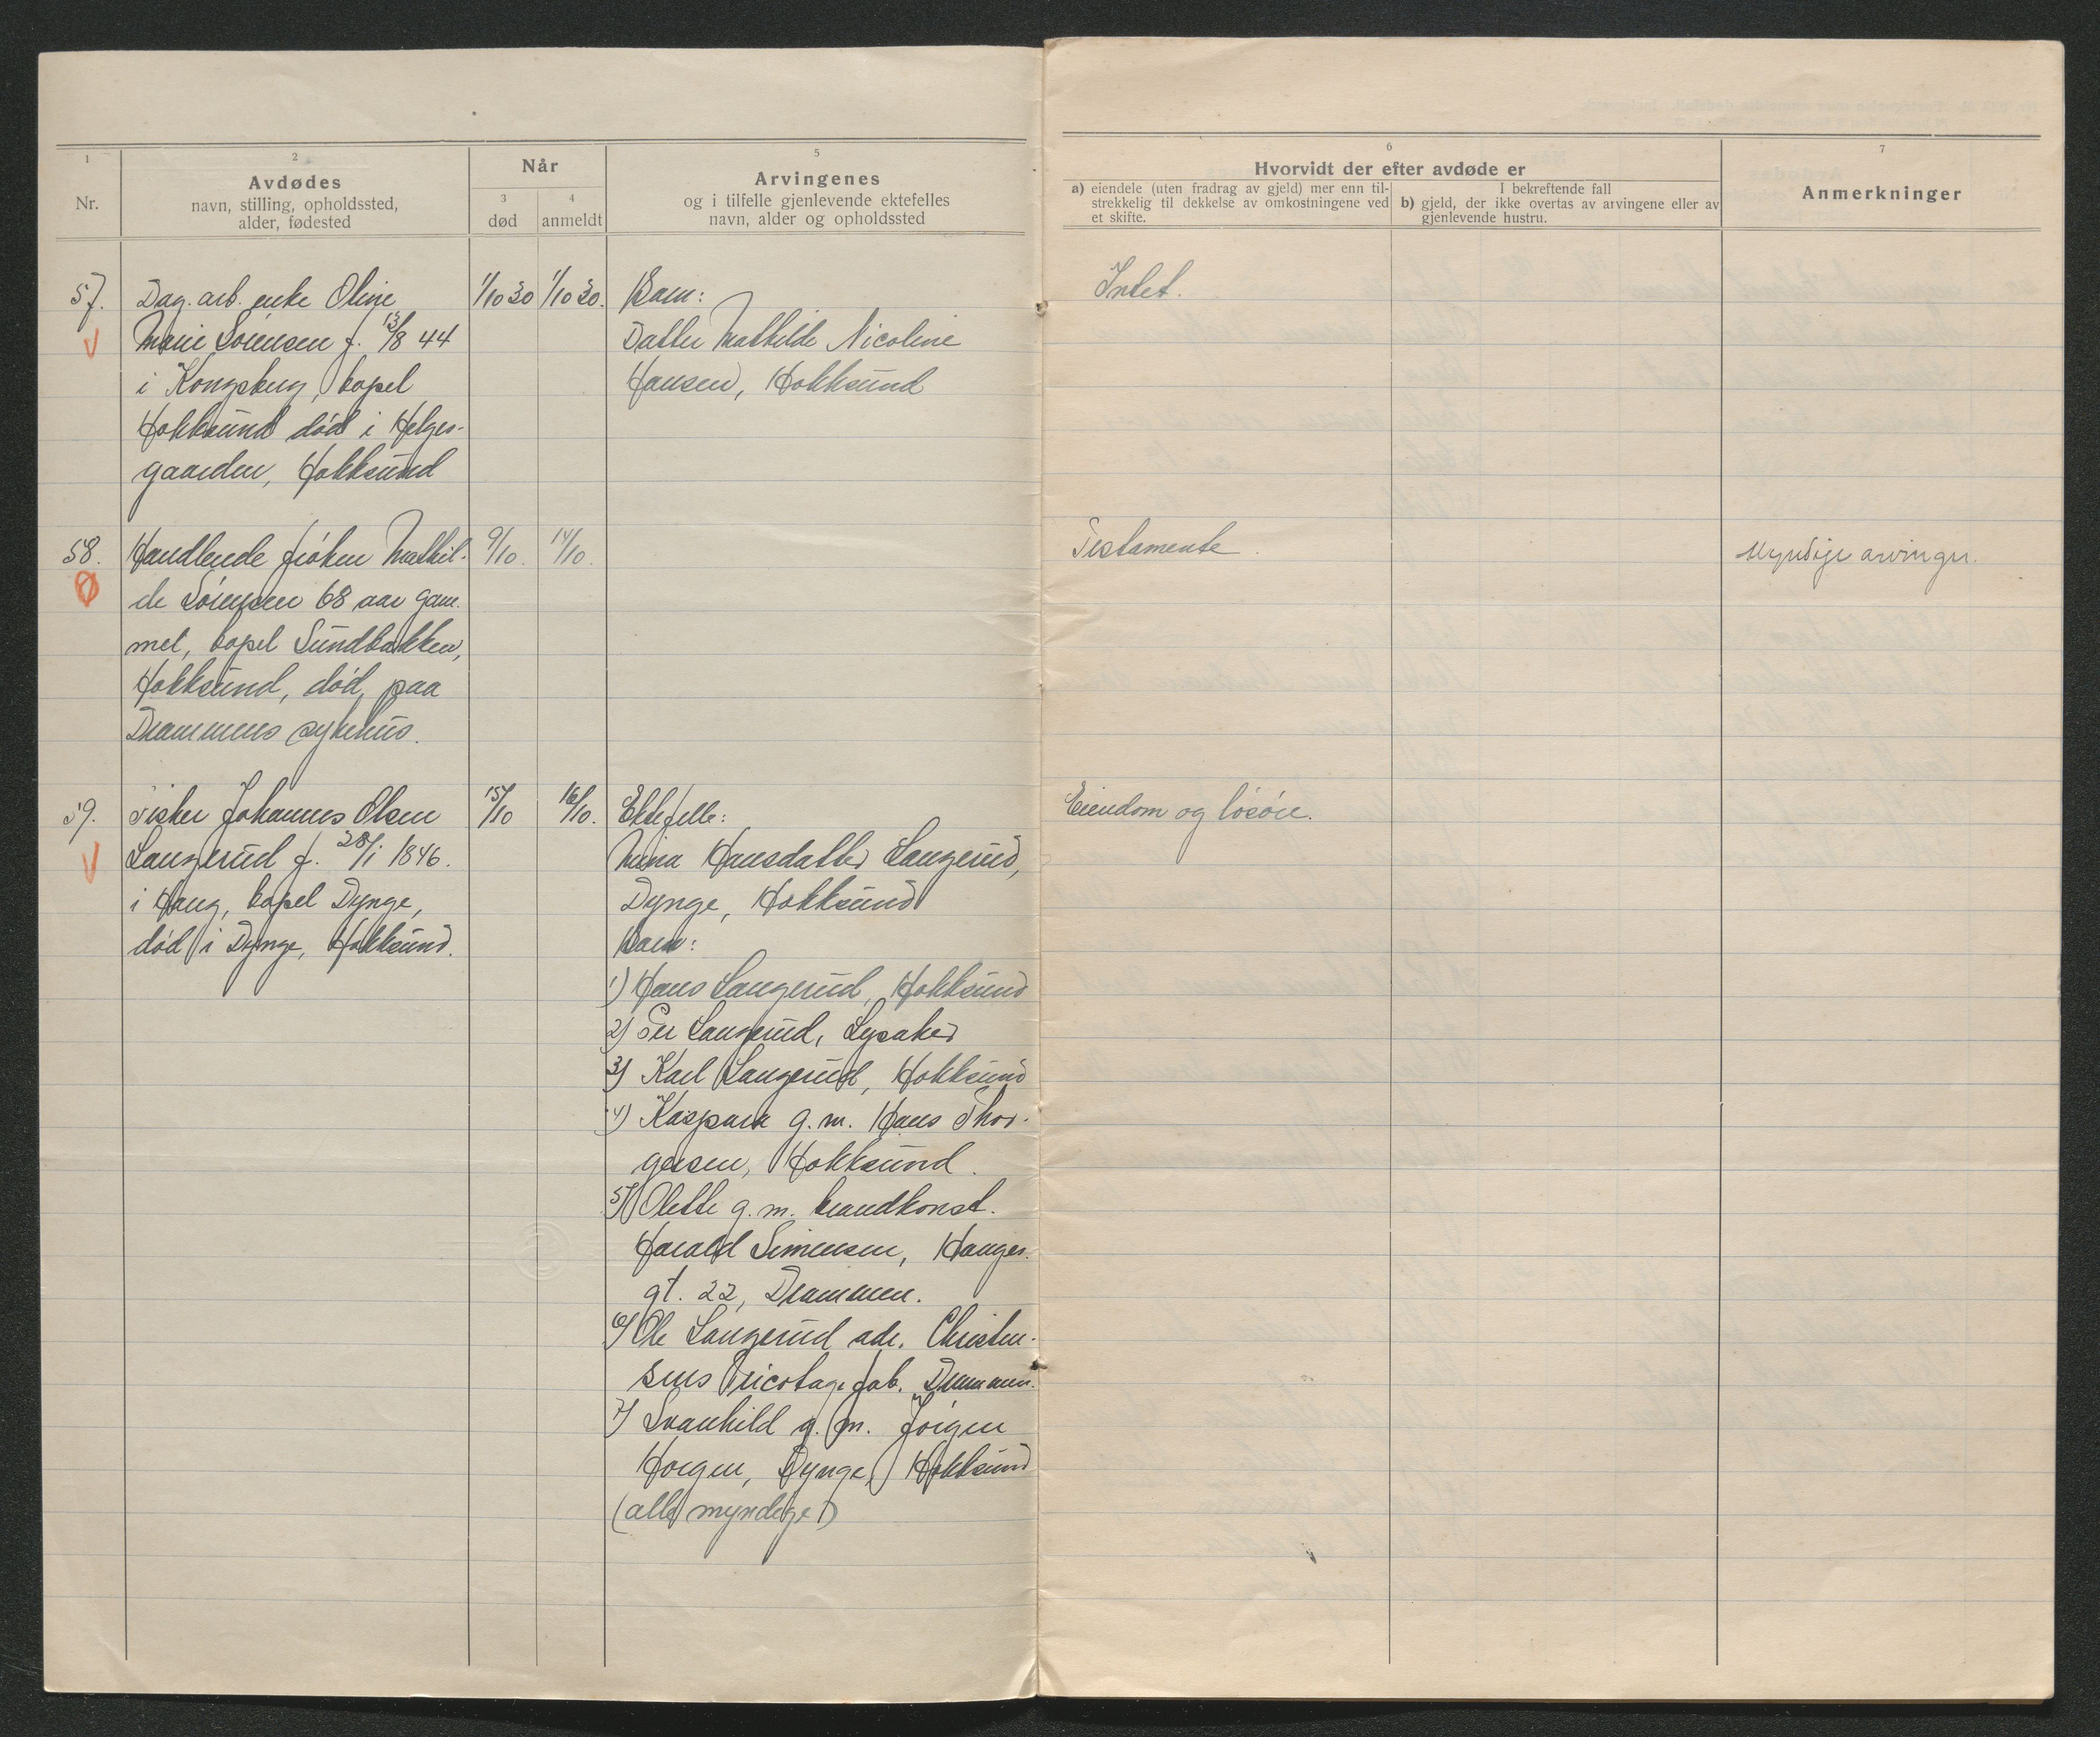 1
2
Når
5
6
7
Nr.
Avdødes
navn, stilling, opholdssted,
alder, fødested
3
død
4
anmeldt
Arvingenes
og i tilfelle gjenlevende ektefelles
navn, alder og opholdssted
Hvorvidt der efter avdøde er
a) eiendele (uten fradrag av gjeld) mer enn til-
strekkelig til dekkelse av omkostningene ved
et skifte.
I bekreftende fall
b) gjeld, der ikke overtas av arvingene eller av
gjenlevende hustru.
Anmerkninger
57. Dag. arb. enke Oline 1/10 30 1/10 30. Barn: Intet.
Marie Sørensen f. 13/8 44 Datter Mathilde Nicoline
i Kongsberg, bopel Hansen, Hokksund
Hokksund død i Helges-
gaarden, Hokksund
58. Handlende frøken Mathil- 9/10. 14/10. Testamente. Myndige arvinger.
de Sørensen 68 aar gam-
mel, bopel Sundbakken,
Hokksund, død paa
Drammens sykehus.
59. Fisker Johannes Olsen 15/10 16/10. Ektefelle: Eiendom og løsøre.
Langerud f. 28/1 1846. Mina Hansdatter Langerud,
i Haug, bopel Dynge, Dynge, Hokksund
død i Dynge, Hokksund. Barn:
1) Hans Langerud, Hokksund
2) Per Langerud, Lysaker
3) Karl Langerud, Hokksund
4) Kaspara g. m. Hans Thor-
gersen, Hokksund.
5) Olette g. m. brandkonst.
Harald Simensen, Hauges-
gt. 22, Drammen.
6) Ole Langerud adr. Christen-
sens Tricotage fab. Drammen.
7) Svanhild g. m. Jørgen
Horgen, Dynge, Hokksund
(alle myndige)